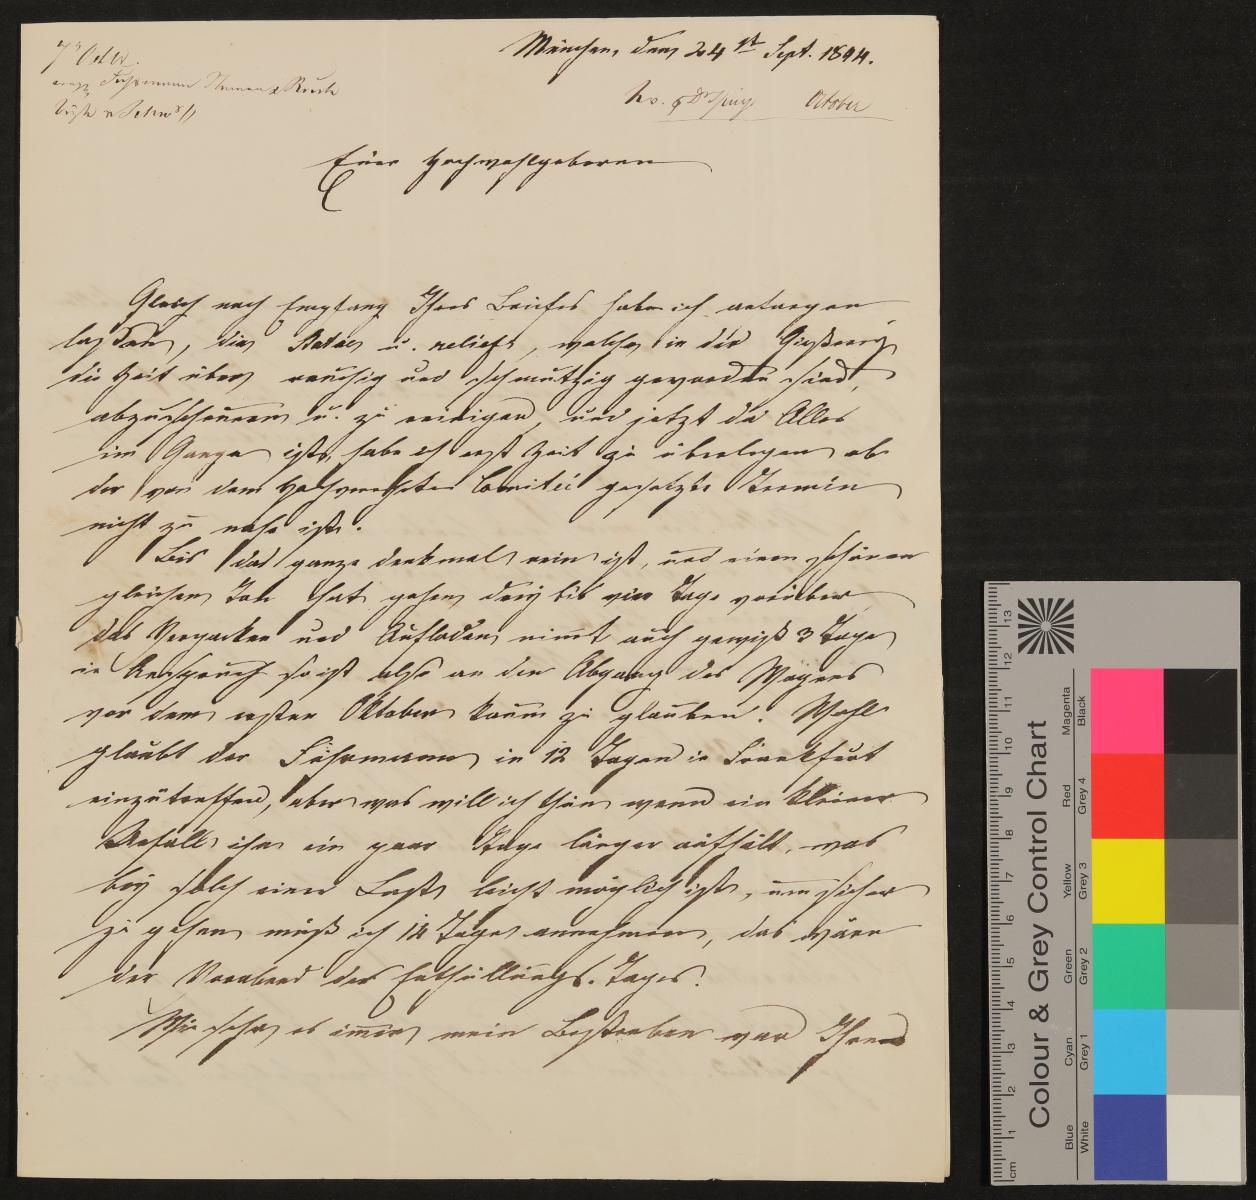 München, den 24st Sept. 1844.
October
Euer Hochwohlgeboren
Gleich nach Empfang Ihres Briefes habe ich anfangen
lassen, die Statue u. reliefs, welche in der Gießerey
die Zeit über rauchig und schmutzig geworden sind,
abzuscheuern u. zu reinigen, und jetzt da Alles
im Gange ist, habe ich erst Zeit zu überlegen ob
der von dem Hochverehrten Comitéé gesetzte Termin
nicht zu nahe ist.
Bis das ganze denkmal rein ist, und einen schönen
gleichen Ton hat gehen drey bis vier Tage vorüber
das Verpacken und Aufladen nimt auch gewiß 3 Tage
in Anspruch so ist also an den Abgang des Wagens
vor dem ersten Oktober kaum zu glauben. Wohl
glaubt der Fuhrmann in 12 Tagen in Frankfurt
einzutreffen, aber was will ich thun wenn ein kleiner
Unfall ihn ein paar Tage länger aufhält, was
bey solch einer Last leicht möglich ist, um sicher
zu gehen muß ich 14 Tage annehmen, das wäre
der Vorabend des Enthüllungs-Tages.
Wie sehr es immer mein Bestreben war Ihren